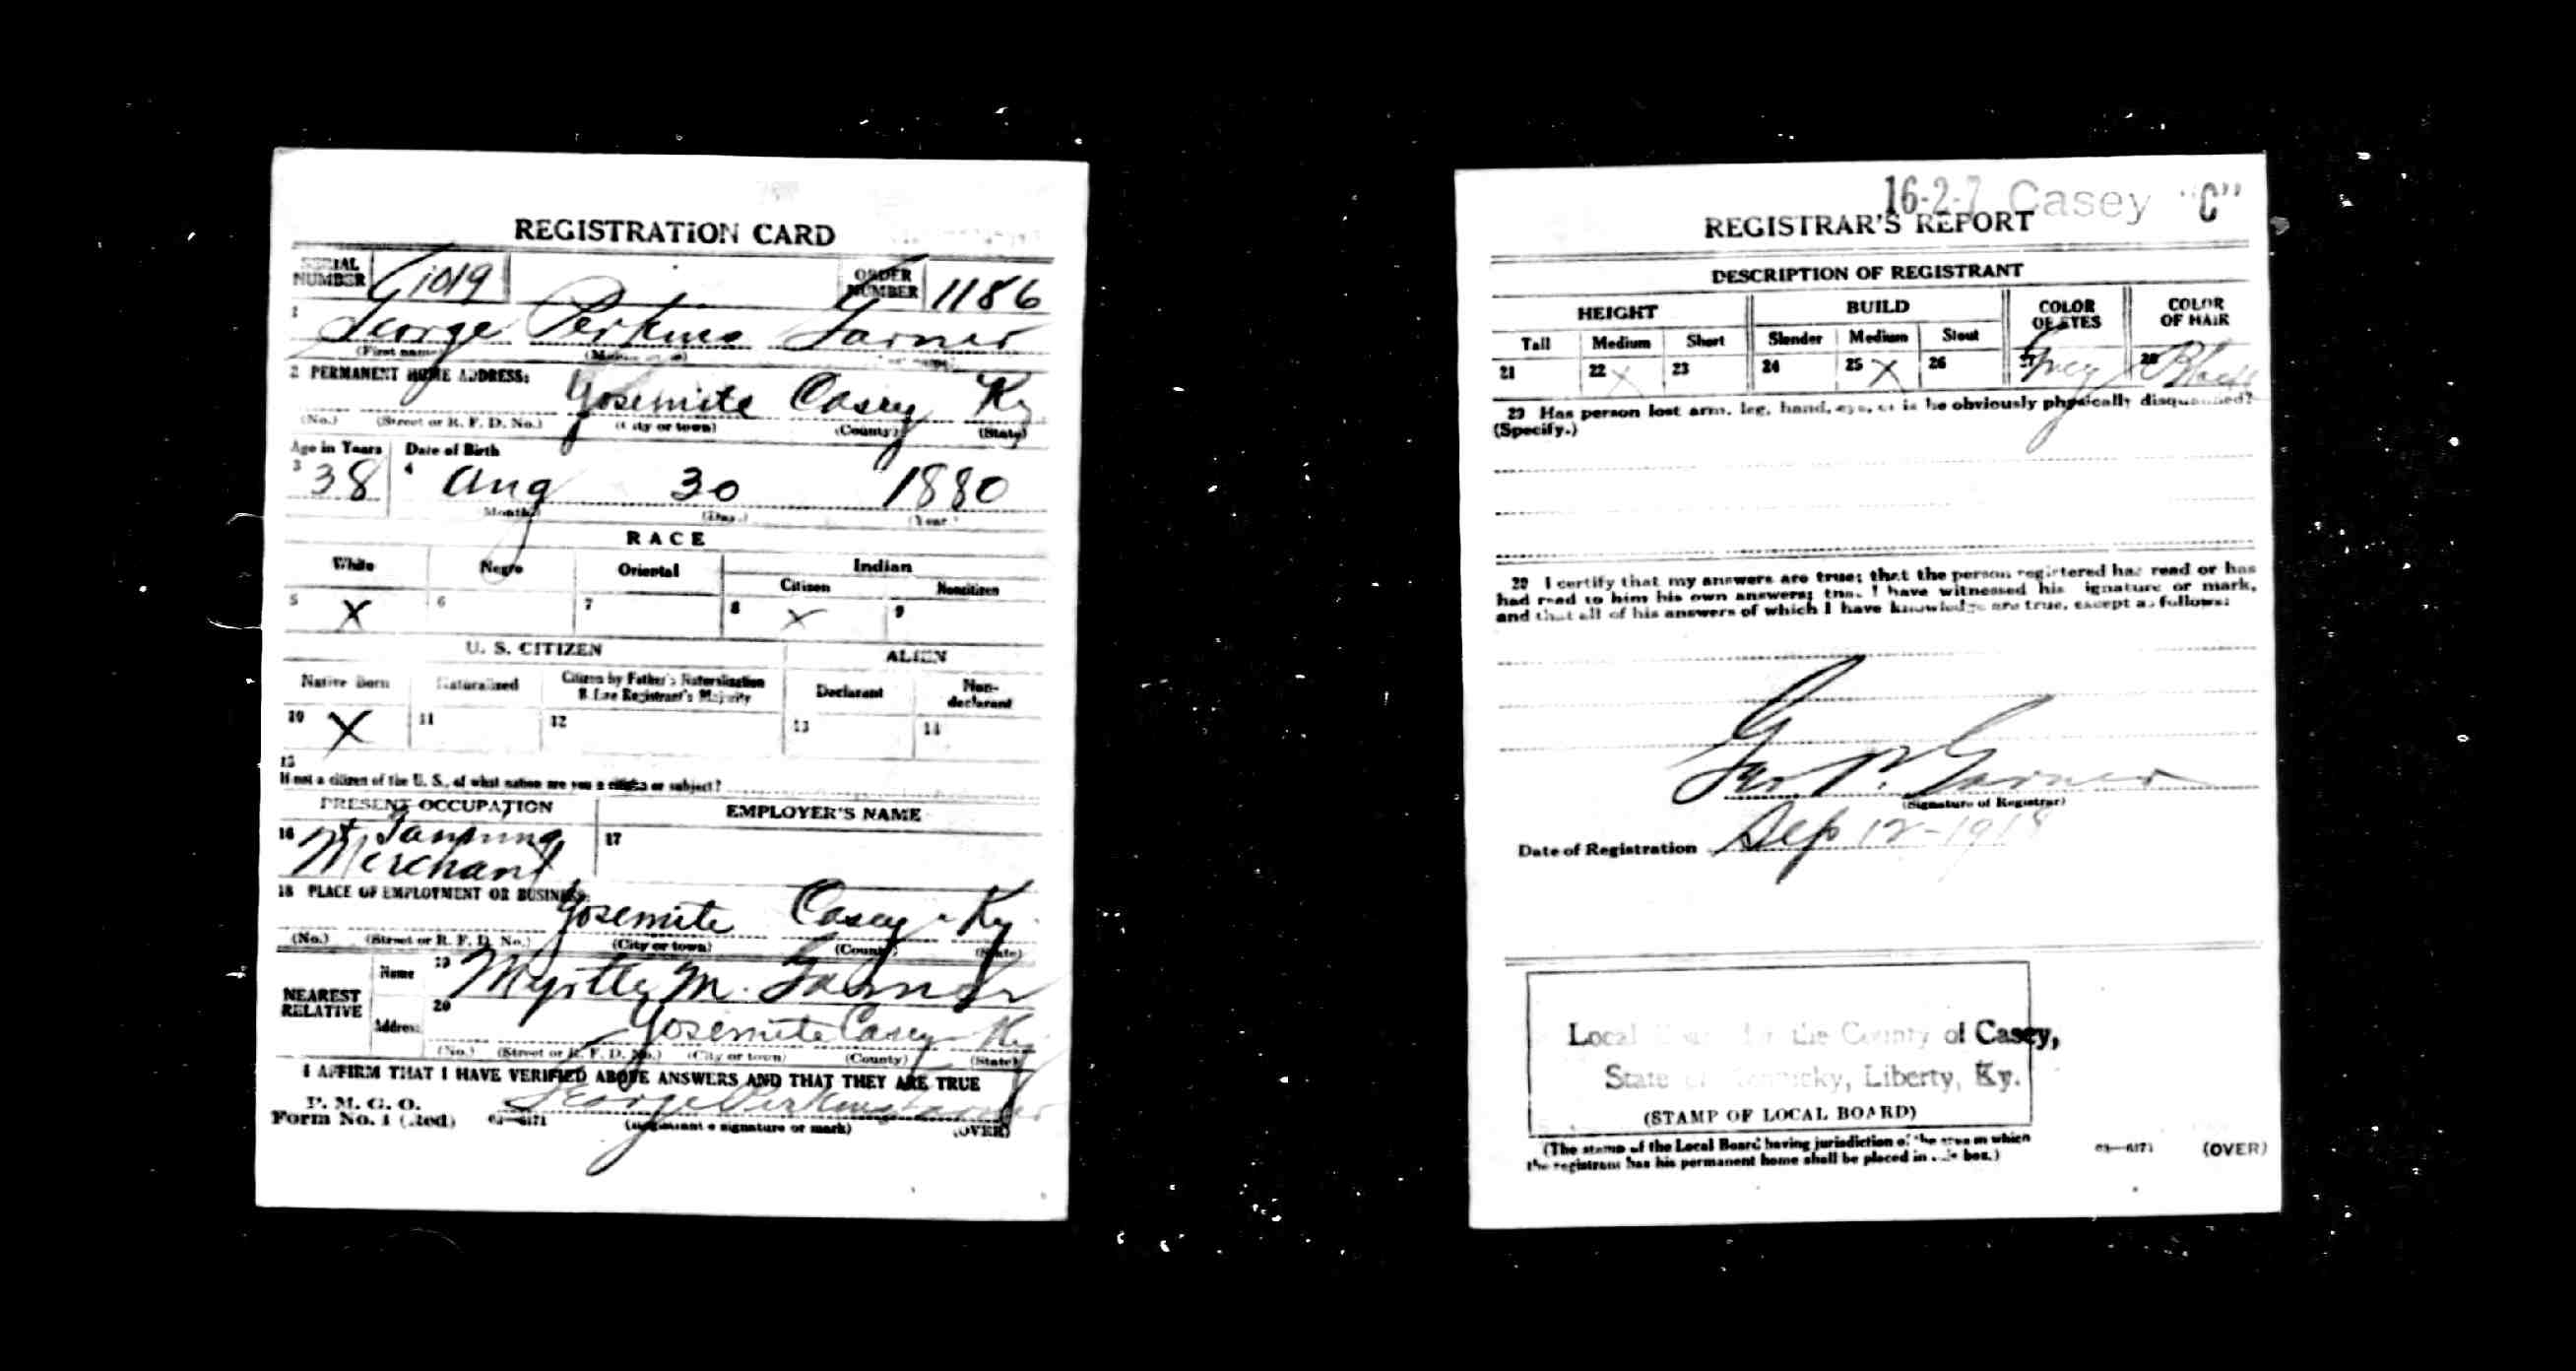 REGISTRATION CARD
SERIAL NUMBER 1019 ORDER NUMBER 1186
1 George Perkins Garner
(First name) (Middle name)
2 PERMANENT HOME ADDRESS: Yosemite Casey Ky
(No.) (Street or R. F. D. No.) (City or town) (County) (State)
Age in Years Date of Birth
3 38 4 Aug 30 1880
(Month.) (Day.) (Year.)
RACE
White Negro Oriental Indian
Citizen Noncitizen
5 X 6 7 8 X 9
U. S. CITIZEN ALIEN
Native Born Naturalized Citizen by Father's Naturalization Before Registrant's Majority Declarant Non-declarant
10 X 11 12 13 14
15
If not a citizen of the U. S., of what nation are you a citizen or subject?
PRESENT OCCUPATION EMPLOYER'S NAME
16 Merchant 17
18 PLACE OF EMPLOYMENT OR BUSINESS:
Yosemite Casey Ky
(No.) (Street or R. F. D. No.) (City or town) (County) (State)
NEAREST RELATIVE
Name 19 Myrtle M. Garner
Address 20 Yosemite Casey Ky
(No.) (Street or R. F. D. No.) (City or town) (County) (State)
I AFFIRM THAT I HAVE VERIFIED ABOVE ANSWERS AND THAT THEY ARE TRUE
P. M. G. O.
Form No. 1 (Red) 03—6171 George Perkins Garner
(Registrant's signature or mark) (OVER)
16-2-7 Casey "C"
REGISTRAR'S REPORT
DESCRIPTION OF REGISTRANT
HEIGHT BUILD COLOR OF EYES COLOR OF HAIR
Tall Medium Short Slender Medium Stout
21 22 X 23 24 25 X 26 27 Grey 28 Black
29 Has person lost arm, leg, hand, eye, or is he obviously physically disqualified?
(Specify.)
30 I certify that my answers are true; that the person registered has read or has
had read to him his own answers; that I have witnessed his signature or mark,
and that all of his answers of which I have knowledge are true, except as follows:
Geo. P. Garner
(Signature of Registrar)
Date of Registration Sep 12-1918
Local Board for the County of Casey,
State of Kentucky, Liberty, Ky.
(STAMP OF LOCAL BOARD)
(The stamp of the Local Board having jurisdiction of the area in which
the registrant has his permanent home shall be placed in this box.)
03—6171 (OVER)